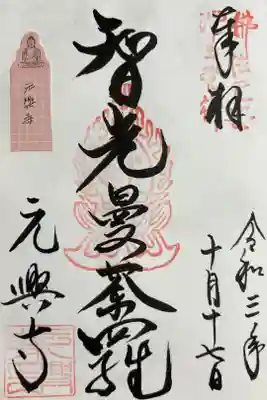 奉拝
令和三年
十月十七日
智光曼荼羅
元興寺
元興寺